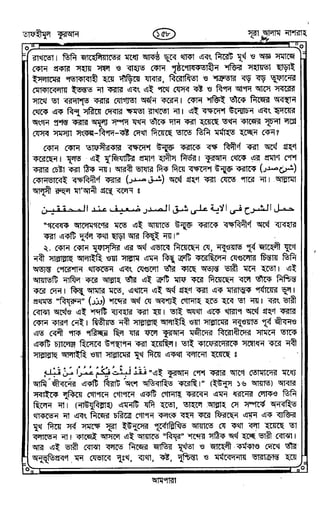 তাফহীমুল কুরআন
১৫৮
সূরা আলাম নাশরাহ
রাখতো। তিনি জাহেলিয়াতের মধ্যে আকণ্ঠ ডুবে থাকা এবং নিরেট মূর্খ ও অজ্ঞ সমাজে
কোন প্রকার সহায় সম্বল ও বাহ্যত কোন পৃষ্ঠপোষকতাহীন শক্তির সহায়তা ছাড়াই
ইসলামের পতাকাবাহী হয়ে দাঁড়িয়ে যাবার, বিরোধিতা ও শত্রুতার বড় বড় তুফানের
মোকাবেলায় ইতস্তত না করার এবং এই পথে যেসব কষ্ট ও বিপদ আপদ আসে সবরের
সাথে তা বরদাশত করার যোগ্যতা অর্জন করেন। কোন শক্তিই তাঁকে নিজের অবস্থান
থেকে এক বিন্দু সরিয়ে দেবার ক্ষমতা রাখতো না। এই বক্ষদেশ উন্মোচন এবং হৃদয়ের
অঙ্গন প্রশস্ত করার অমূল্য সম্পদ যখন তাঁকে দান করা হয়েছে তখন কাজের সূচনা লগ্নে
যেসব সমস্যা সংকট-বিপদ-কষ্ট দেখা দিয়েছে তাতে তিনি মর্মাহত হচ্ছেন কেন?
কোন কোন তাফসীরকার বক্ষদেশ উন্মুক্ত করাকে বক্ষ বিদীর্ণ করা অর্থে গ্রহণ
করেছেন। মূলত এই মু'জিযাটির প্রমাণ হাদীস নির্ভর। কুরআন থেকে এর প্রমাণ পেশ
করার চেষ্টা করা ঠিক নয়। আরবী ভাষার দিক দিয়ে বক্ষদেশ উন্মুক্ত করাকে (شرح صدر)
কোনভাবেই বক্ষবিদীর্ণ করার (شق صدر) অর্থে গ্রহণ করা যেতে পারে না। আল্লামা
আলূসী রুহুল মা'আনী গ্রন্থে বলেন ঃ
حمل الشرح فى الاية على شق الصدر ضعيف عند المحققين
"গবেষক আলেমগণের মতে এই আয়াতে উন্মুক্ত করাকে বক্ষবিদীর্ণ অর্থে ব্যবহার
করা একটি দুর্বল কথা ছাড়া আর কিছুই নয়।"
২. কোন কোন মুফাসসির এর অর্থ এভাবে নিয়েছেন যে, নবুওয়াত পূর্ব জাহেলী যুগে
নবী সাল্লাল্লাহু আলাইহি ওয়া সাল্লাম এমন কিছু ত্রুটি করেছিলেন যেগুলোর চিন্তায় তিনি
অত্যন্ত পেরেশান থাকতেন এবং যেগুলো তাঁর কাছে অত্যন্ত ভারী মনে হতো। এই
আয়াতটি নাযিল করে আল্লাহ তাঁর এই ত্রুটি মাফ করে দিয়েছেন বলে তাঁকে নিশ্চিন্ত
করে দেন। কিন্তু আমার মতে, এখানে এই অর্থ গ্রহণ করা এক মারাত্মক পর্যায়ের ভুল।
প্রথমত "বিযরুন" (وزر) শব্দের অর্থ যে অবশ্যই গোনাহ হতে হবে তা নয়। বরং ভারী
বোঝা অর্থেও এই শব্দটি ব্যবহার করা হয়। তাই অযথা একে খারাপ অর্থে গ্রহণ করার
কোন কারণ নেই। দ্বিতীয়ত নবী সাল্লাল্লাহু আলাইহি ওয়া সাল্লামের নবুওয়াত পূর্ব জীবনও
এত বেশী পাক পরিচ্ছন্ন ছিল যার ফলে কুরআন মজীদের বিরোধীদের সামনে তাকে
একটি চ্যালেঞ্জ হিসেবে উপস্থাপন করা হয়েছিল। তাই কাফেরদেরকে সম্বোধন করে নবী
সাল্লাল্লাহু আলাইহি ওয়া সাল্লামের মুখ দিয়ে একথা বলানো হয়েছে ঃ
فَقَدْ لَبِثْتُ فِيْكُمْ عُمُرًا مِّنْ قَبْلِهٖ "এই কুরআন পেশ করার আগে তোমাদের মধ্যে
আমি জীবনের একটি বিরাট অংশ অতিবাহিত করেছি।" (ইউনুস ১৬ আয়াত) আবার
সবাইকে লুকিয়ে গোপনে গোপনে একটি গোনাহ করবেন এমন ধরনের লোকও তিনি
ছিলেন না। (নাউযুবিল্লাহ) এমনটি যদি হতো, তাহলে আল্লাহ সে সম্পর্কে অনবহিত
থাকতেন না এবং নিজের চরিত্রে গোপন কলঙ্ক বহন করে ফিরছেন এমন এক ব্যক্তির
মুখ দিয়ে সর্ব সমক্ষে সূরা ইউনুসের পূর্বোল্লিখিত আয়াতে যে কথা বলা হয়েছে তা
বলাতেন না। কাজেই আসলে এই আয়াতে "বিযর" শব্দের সঠিক অর্থ হচ্ছে ভারী বোঝা।
আর এই ভারী বোঝা বলতে নিজের জাতির মূর্খতা ও জাহেলী কর্মকাণ্ড দেখে তাঁর
অনুভূতিপ্রবণ মন যেভাবে দুঃখ, ব্যথা, কষ্ট, দুশ্চিন্তা ও মর্মবেদনায় ভারাক্রান্ত হয়ে
আমপারা